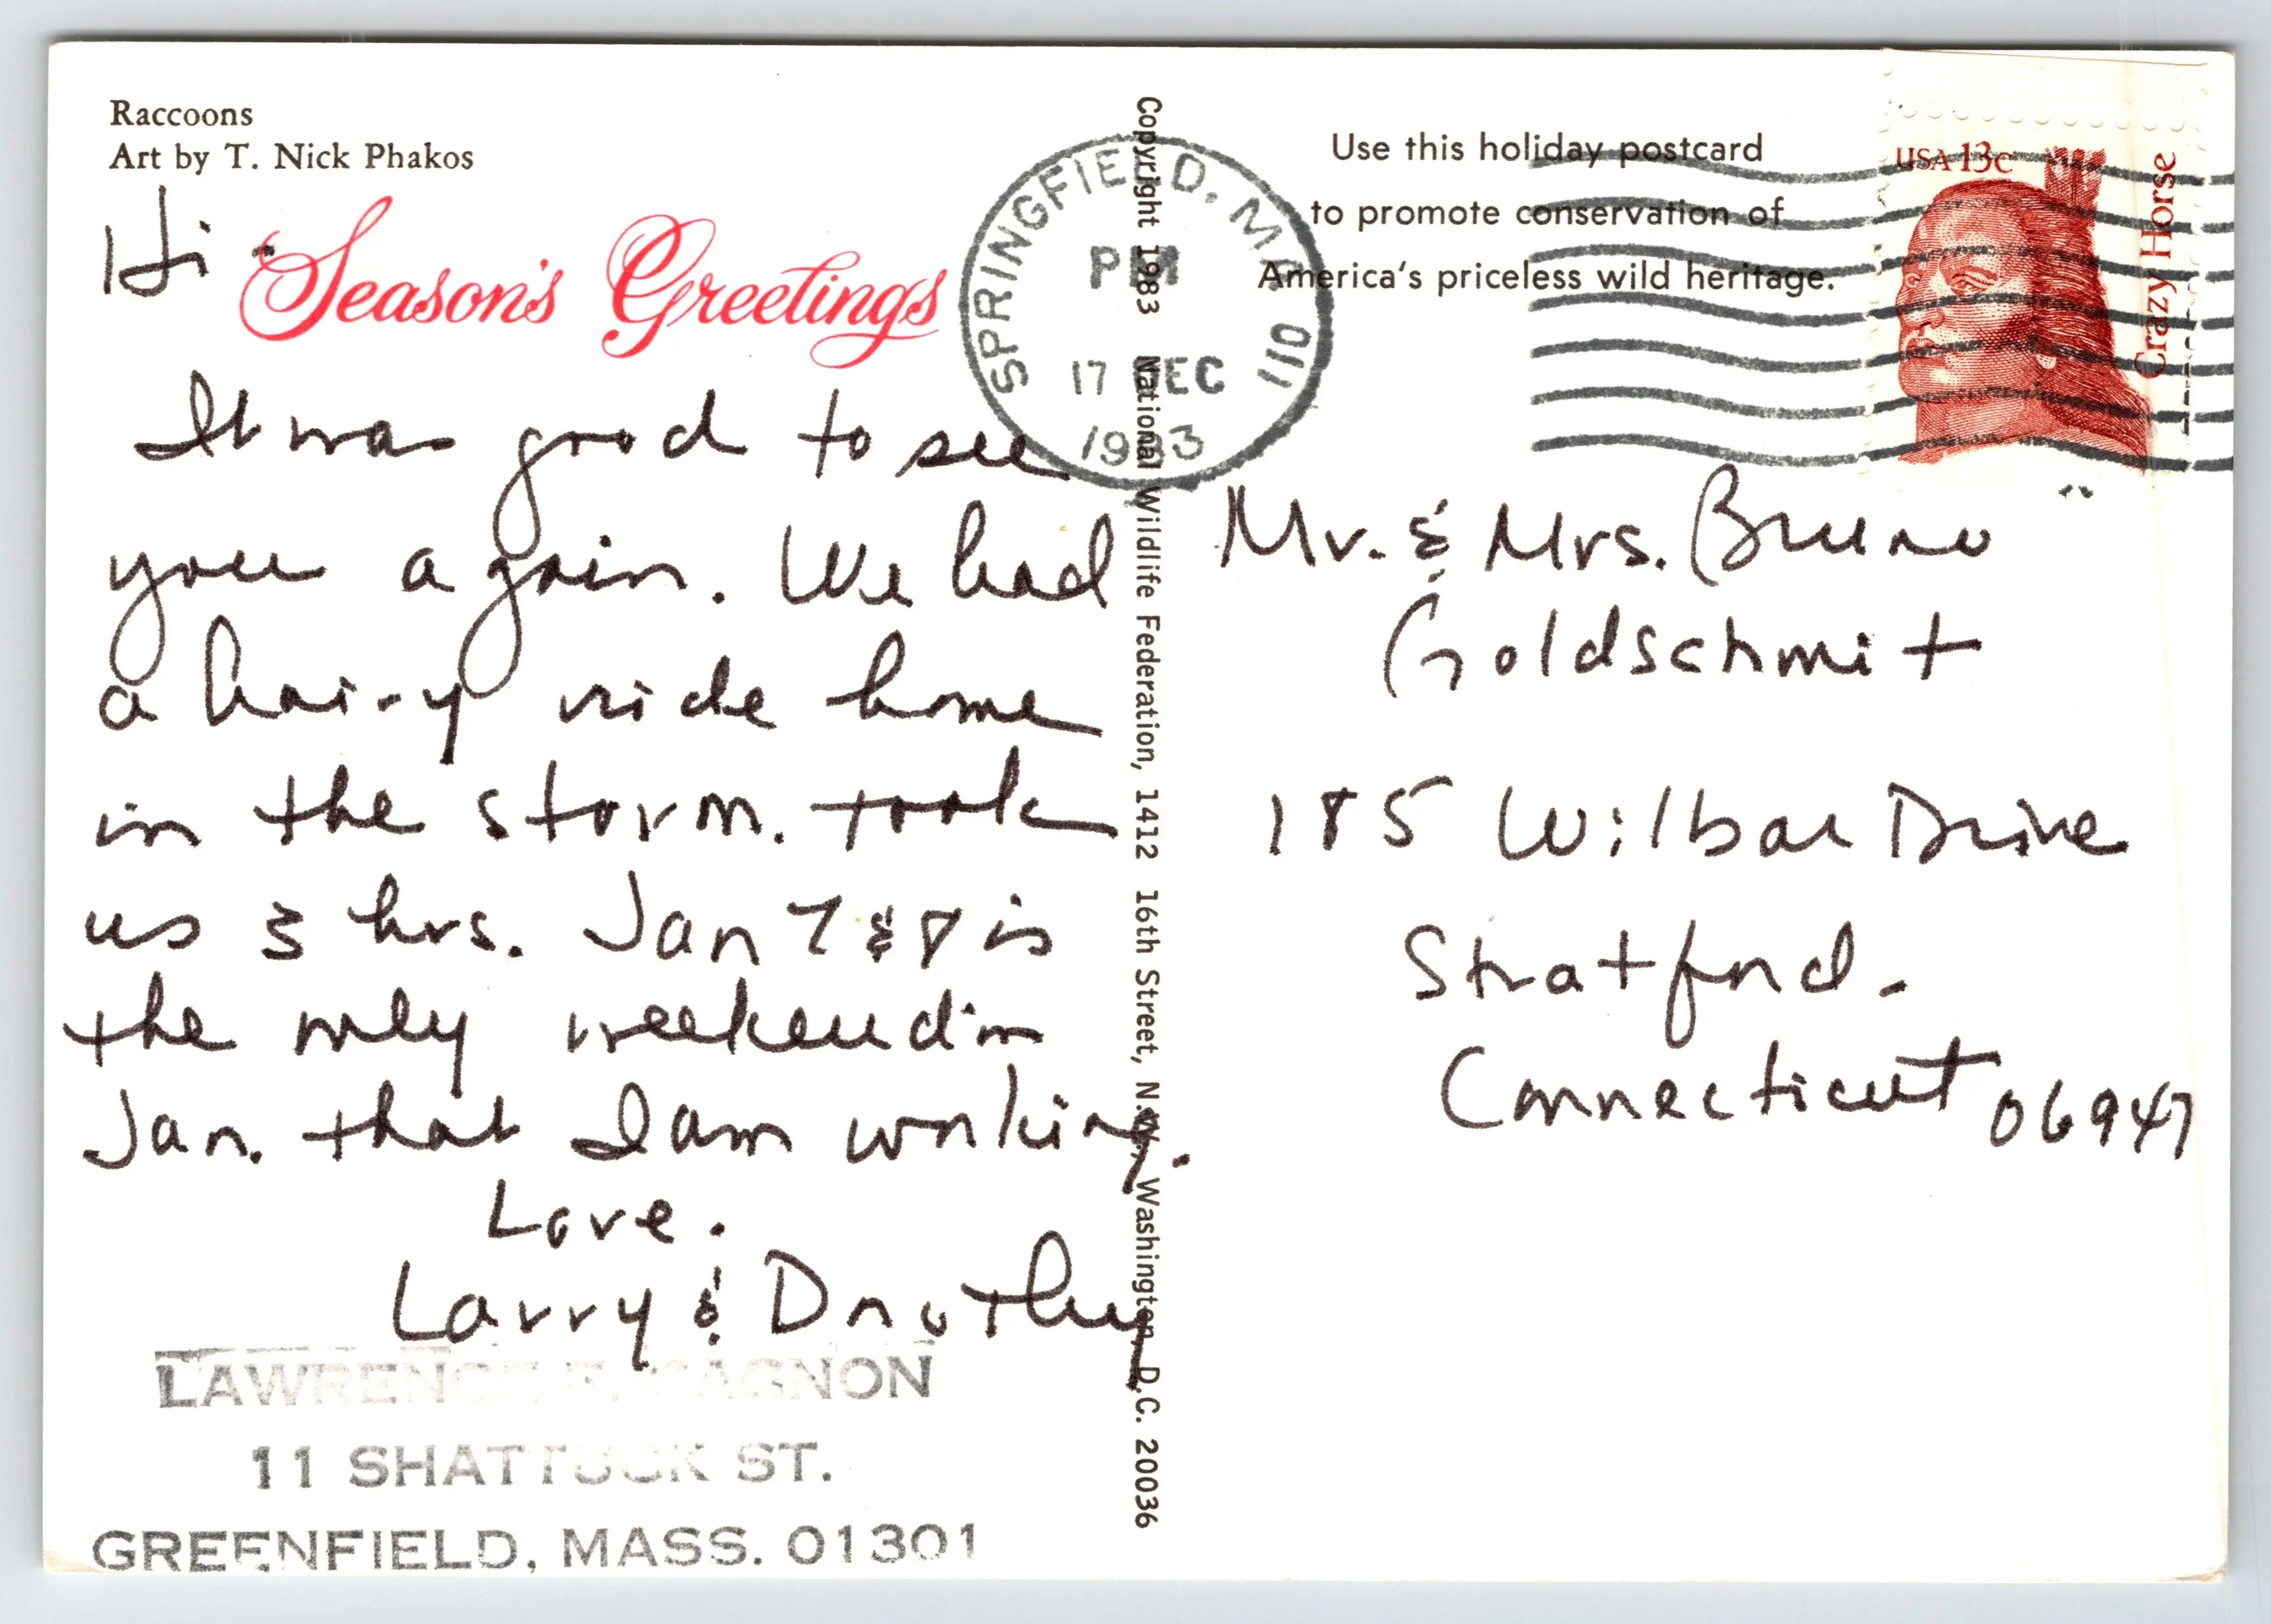 Raccoons
Art by T. Nick Phakos
Hi
Season's Greetings
It was good to see
you again. We had
a hairy ride home
in the storm. took
us 3 hrs. Jan 7 & 8 is
the only weekend in
Jan. that I am working.
Love.
Larry & Dorothy
LAWRENCE GAGNON
11 SHATTUCK ST.
GREENFIELD, MASS. 01301
Copyright 1983 National Wildlife Federation, 1412 16th Street, N.W., Washington, D.C. 20036
SPRINGFIELD, MA 011
PM
17 DEC
1983
Use this holiday postcard
to promote conservation of
America's priceless wild heritage.
USA 13c
Crazy Horse
Mr. & Mrs. Bruno
Goldschmit
185 Wilbar Drive
Stratford.
Connecticut 06947